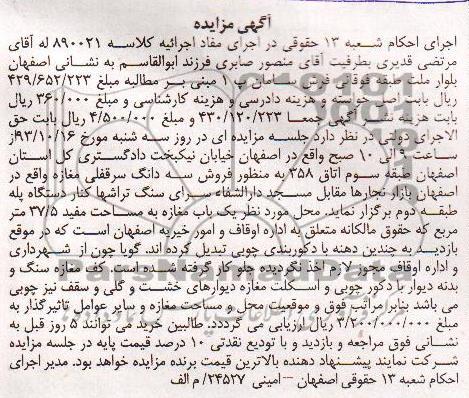 آگهی مزایده
اجرای احکام شعبه ۱۳ حقوقی در اجرای مفاد اجرائیه کلاسه ۸۹۰۰۲۱ له آقای
مرتضی قدیری بطرفیت آقای منصور صابری فرزند ابوالقاسم به نشانی اصفهان
بلوار ملت طبقه فوقانی فرش سامان م ۱ مبنی بر مطالبه مبلغ ۴۲۹/۶۵۲/۲۲۳
ریال بابت اصل خواسته و هزینه دادرسی و هزینه کارشناسی و مبلغ ۳۶۰/۰۰۰ ریال
بابت هزینه نشر آگهی جمعا ۴۳۰/۱۲۰/۲۲۳ و مبلغ ۴/۵۰۰/۰۰۰ ریال بابت حق
الاجرای دولتی در نظر دارد جلسه مزایده ای در روز سه شنبه مورخ ۹۳/۱۰/۱۶از
ساعت ۹ الی ۱۰ صبح واقع در اصفهان خیابان نیکبخت دادگستری کل استان
اصفهان طبقه سوم اتاق ۳۵۸ به منظور فروش سه دانگ سرقفلی مغازه واقع در
اصفهان بازار نجارها مقابل مسجد دارالشفاء سرای سنگ تراشها کنار دستگاه پله
طبقه دوم برگزار نماید. محل مورد نظر یک باب مغازه به مساحت مفید ۳۷/۵ متر
مربع که حقوق مالکانه متعلق به اداره اوقاف و امور خیریه اصفهان است که در موقع
بازدید به چندین دهنه با دکوربندی چوبی تبدیل کرده اند. گویا چون از شهرداری
و اداره اوقاف مجوز لازم اخذ نگردیده جلو کار گرفته شده است. کف مغازه سنگ و
بدنه دیوار با دکور چوبی و اسکلت مغازه دیوارهای خشت و گلی و سقف نیز چوبی
می باشد بنابر مراتب فوق و موقعیت محل و مساحت مغازه و سایر عوامل تاثیرگذار به
مبلغ ۳/۲۰۰/۰۰۰/۰۰۰ ریال ارزیابی می گرددد. طالبین خرید می توانند ۵ روز قبل به
نشانی فوق مراجعه و بازدید و با تودیع نقدتی ۱۰ درصد قیمت پایه در جلسه مزایده
شرکت نمایند پیشنهاد دهنده بالاترین قیمت برنده مزایده خواهد بود. مدیر اجرای
احکام شعبه ۱۳ حقوقی اصفهان – امینی ۲۴۵۲۷/ م الف